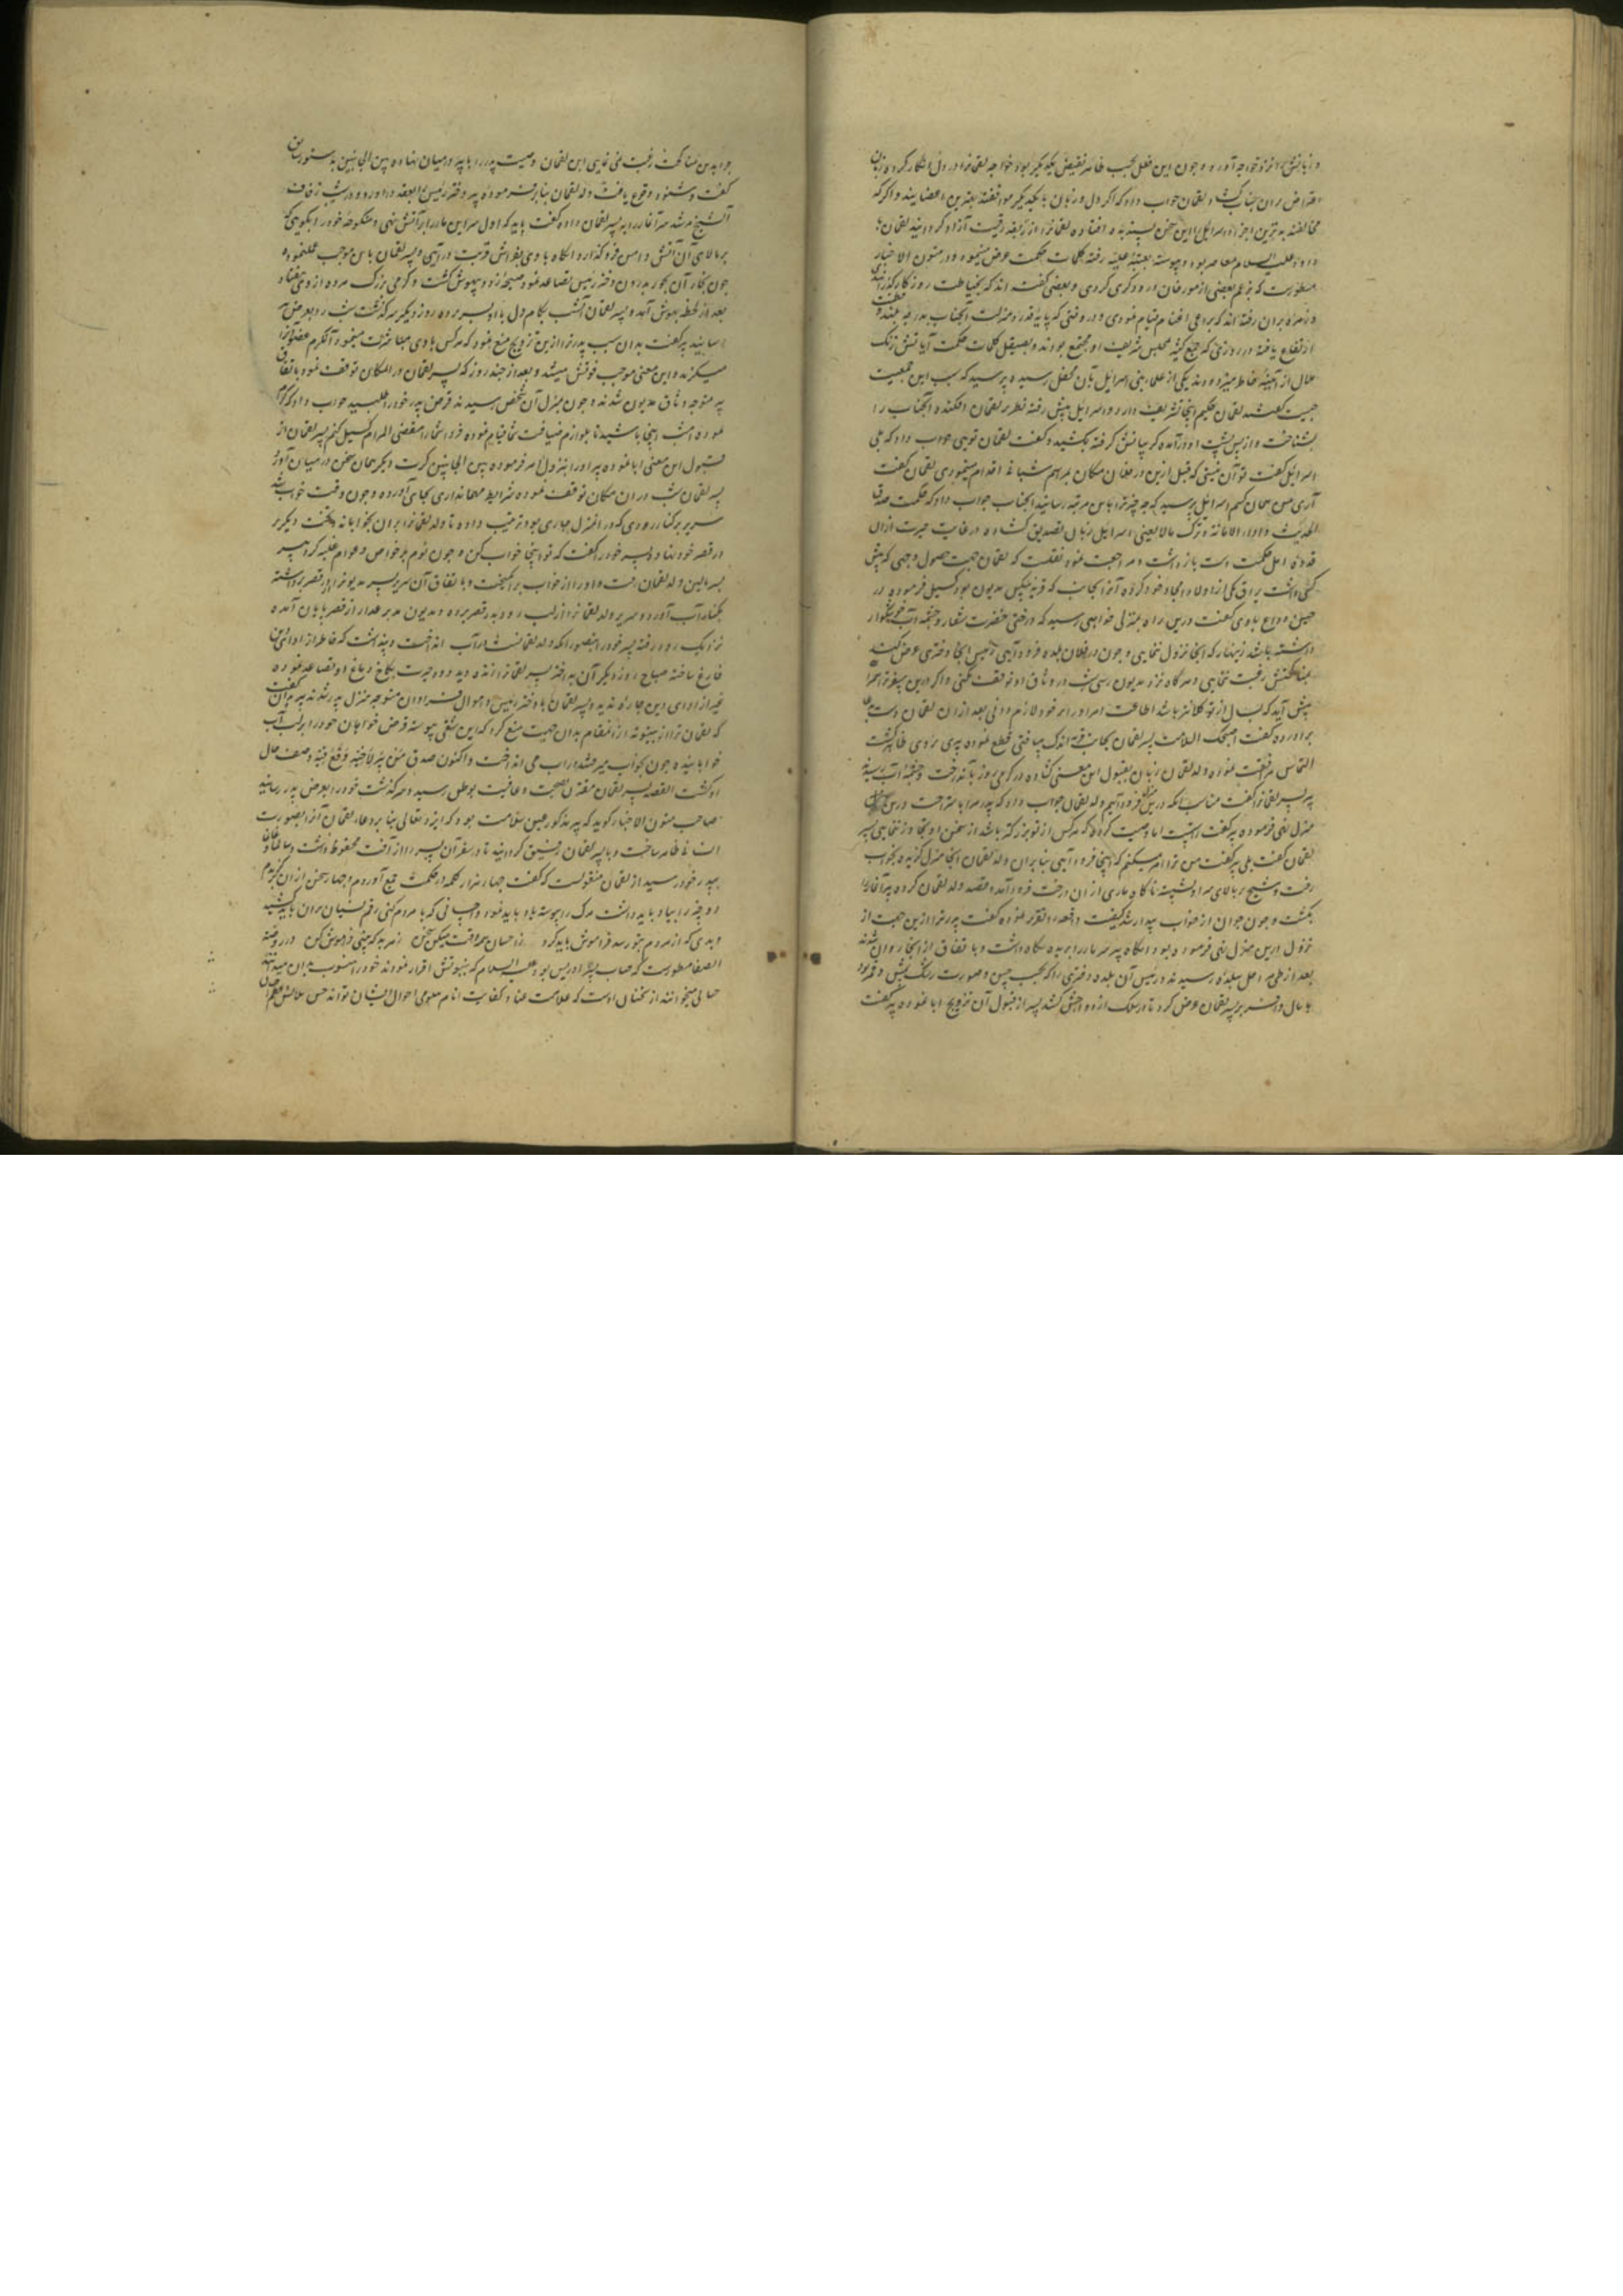 و زبانش را نزد خواجه آورد و چون این فعل بحسب ظاهر نقیض یکدیگر بود خواجه لقمانرا در دل انکار کرده زبان
لقمان جواب داد که اگر دل و زبان با یکدیگر موافقند بهترین اعضایند و اگر که
مخالفند بدترین اجزاء اسرائیلی را این سخن پسندیده افتاده لقمانرا از ربقه رقیت آزاد گردانید لقمان با
داود علیه السلام معاصر بود و پیوسته بعتبه علیه رفته کلمات حکمت عرض مینمود و در متون الاخبار
مسطورست که بزعم بعضی از مورخان درودگری کردی و بعضی گفته اند که بخیاطت روزگار گذرانیدی
و زمره بران رفته اند که براعی اغنام قیام نمودی و در وقتی که پایه قدر و منزلت آنجناب بدرجه بلند
ارتفاع یافته در روزی که جمع کثیر بمجلس شریف او مجتمع بودند و بصیقل کلمات حکمت آیاتش زنک
ملال از آینه خاطر میزدودند یکی از علماء بنی اسرائیل بآن محفل رسیده پرسید که سبب این جمعیت
چیست گفتند لقمان حکیم اینجا تشریف دارد اسرائیلی پیش رفته نظر بر لقمان افکنده آنجناب را
بشناخت و از پس پشت او درآمده گریبانش گرفته بکشید و گفت لقمان تویی جواب داد که بلی
اسرائیلی گفت تو آن نیستی که قبل ازین در فلان مکان بمراسم شبانی اقدام مینمودی لقمان گفت
آری من همان کسم اسرائیلی پرسید که چه چیز ترا باین مرتبه رسانید آنجناب جواب داد که حکمت صدق
الحدیث و اداء الامانة و ترک مالا یعنی اسرائیلی زبان تصدیق گشاده در غایت حیرت ازان
قدوه اهل حکمت دست بازداشت و مراجعت نمود نقلست که لقمان جهت حصول وجهی که پیش
کسی داشت یراق یکی از اولاد امجاد خود کرده آنرا بجانب که قریب مسکن مدیون بود گسیل فرموده در
حین وداع باوی گفت درین راه بمنزلی خواهی رسید که درختی خضرت شعار و چشمه آب خوشگوار
داشته باشد زینهار که آنجا نزول ننمایی و چون در فلان بلده فرود آیی رئیس آنجا دختری عرض کند
بمناکحتش رغبت ننمایی و هرگاه نزد مدیون رسی شب در وثاق او توقف نکنی و اگر درین سفر ترا
پیش آید که بسال از تو کلانتر باشد اطاعت امر او را بر خود لازم دانی بعد ازان لقمان دست
برآورده گفت اصحبک السلامت پسر لقمان بجانب اندک مسافتی قطع نموده پیری بروی ظاهر گشت
التماس مرافقت نموده ولد لقمان زبان بقبول این معنی گشاده در گرمی روز بآن درخت و چشمه آب رسید
پیر پسر لقمانرا گفت مناسب آنکه درین منزل فرود آییم ولد لقمان جواب داد که پدر مرا باستراحت درین
منزل نهی فرموده پیر گفت راست اما وصیت کرده که هرکس از تو بزرگتر باشد از سخن او تجاوز ننمایی پسر
لقمان گفت بلی پیر گفت من ترا امر میکنم که اینجا فرود آیی بنابران ولد لقمان آنجا منزل گزیده بخواب
رفت و شیخ بر بالای سر او نشسته ناگاه ماری از ان درخت فرود آمده قصد ولد لقمان کرده پیر آنمار را
بکشت و چون جوان از خواب بیدار شد کیفیت واقعه را تقریر نموده گفت پدر تو ازین جهت از
نزول درین منزل نهی فرموده بود آنگاه پیر سر مار را بریده نگاه داشت و با تفاق از آنجا روان شدند
بعد از طی مراحل ببلده رسیدند و رئیس آن بلده دختری را که بحسب حسن و صورت رشک
با مال وافر بر پسر لقمان عرض کرد تا در سلک ازدواجش کشد پسر از قبول آن تزویج ابا نموده پیر گفت
چرا بدین مناکحت رغبت نمی نمایی ابن لقمان وصیت پدر را با پیر در میان نهاده بین الجانبین بدستور سابق
گفت و شنود وقوع یافت ولد لقمان بنابر فرموده پیر دختر رئیس را بعقد درآورد و در شب زفاف
آن شیخ مرشد سر آنمار را به پسر لقمان داده گفت باید که اول سر این مار را بر آتش نهی و منکوحه خود را بگویی که
بر بالای آن آتش دامن فرو گذارد و آنگاه باوی بفراش قربت درآیی و پسر لقمان باین موجب عمل نموده
چون بخار آن بخور بدرون دختر رئیس تصاعد نمود صیحه زد و بیهوش گشت و کرمی بزرگ مرده از وی بیفتاد
بعد از لحظه بهوش آمد و پسر لقمان آن شب بکام دل با او بسر برده روز دیگر سرگذشت شب را بعرض پیر
رسانید پیر گفت بدان سبب پدر ترا ازین تزویج منع نمود که هرکس با وی مباشرت مینمود آن کرم عضو او را
میگزید و این معنی موجب فوتش میشد و بعد از چند روز که پسر لقمان در آن مکان توقف نمود با تفاق
پیر متوجه وثاق مدیون شدند و چون بمنزل آن شخص رسیدند قرض پدر خود را طلبید جواب داد که کرم
نموده امشب اینجا باشید تا بلوازم ضیافت شما قیام نموده فردا شما را مقضی المرام گسیل کنم پسر لقمان از
قبول این معنی ابا نموده پیر او را بنزول امر فرموده بین الجانبین کرت دیگر همان سخن در میان آمد
پسر لقمان شب در ان مکان توقف نموده شرایط مهمانداری بجای آورده و چون وقت خواب شد
سریر بر کنار رودی که در آن منزل جاری بود ترتیب داده تا ولد لقمانرا بران بخوابانند و تخت دیگر
در قصر خود نهاد و پسر خود را گفت که تو اینجا خواب کن و چون نوم بر خواص و عوام غلبه کرد پیر
بسر بالین ولد لقمان رفت و او را از خواب برانگیخت و با تفاق آن سریر پسر مدیونرا از قصر برداشته
بکنار آب آورد و سریر ولد لقمانرا از لب رود بدر قصر برده و مدیون غدار از قصر پایان آمده
نزدیک رود رفته پسر خود را بتصور آنکه ولد لقمانست در آب انداخت و پنداشت که خاطر از ادای دین
فارغ ساخته صباح روز دیگر آن بداختر پسر لقمانرا زنده دید دود حیرت بکاخ دماغ او تصاعد نموده
غیر از ادای دین چاره ندید و پسر لقمان با دختر رئیس و اموال فراوان متوجه منزل پدر شدند پیر گفت
که لقمان ترا از بیتوته در آن مقام بدان جهت منع کرد که این شقی پیوسته قرض خواهان خود را بر لب آب
خوابانیده چون بخواب میرفتند در آب می انداخت و اکنون صدق من حفر بئرا لاخیه وقع فیه وصف حال
او گشت القصه پسر لقمان مقرون بصحت و عافیت بوطن رسید و سرگذشت خود را بعرض پدر رسانید
صاحب متون الاخبار گوید که پیر مذکور عین سلامت بود که ایزد تعالی بنا بر دعاء لقمان آنرا بصورت
انسانی ظاهر ساخت و با پسر لقمان رفیق گردانید تا در سفر آن پسر را از آفت محفوظ داشت و سالما غانما
بپدر خود رسید از لقمان منقولست که گفت چهار هزار کلمه در حکمت جمع آوردم و چهار سخن از ان برگزیدم
دو چیز را بیاد باید داشت مرک را پیوسته یاد باید نمود و احسانی که با مردم کنی رقم نسیان بران باید کشید
و بدی که از مردم بتو رسد فراموش باید کرد
الصفا مسطورست که صاحب ادریس بود علیه السلام که بنبوتش اقرار نمودند خود را منسوب بدان میدانند